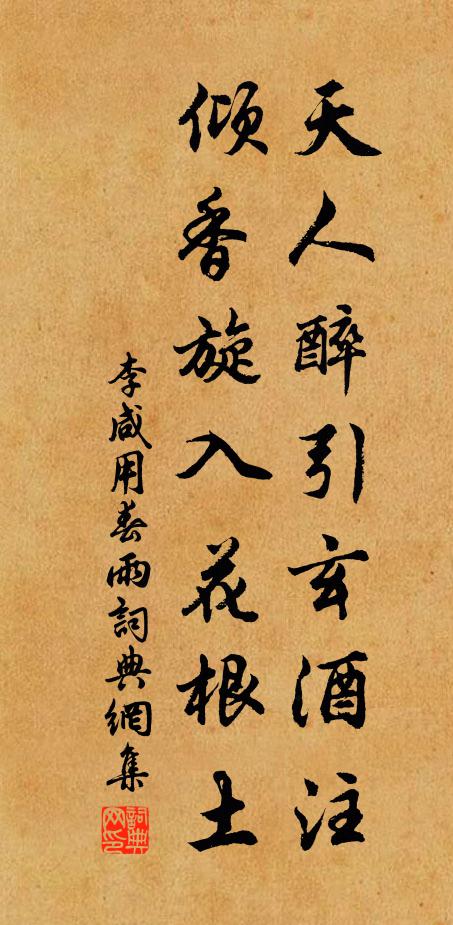 天人醉引玄酒注
倾香旋入花根土
李咸用春雨詞典網集
詞典网印